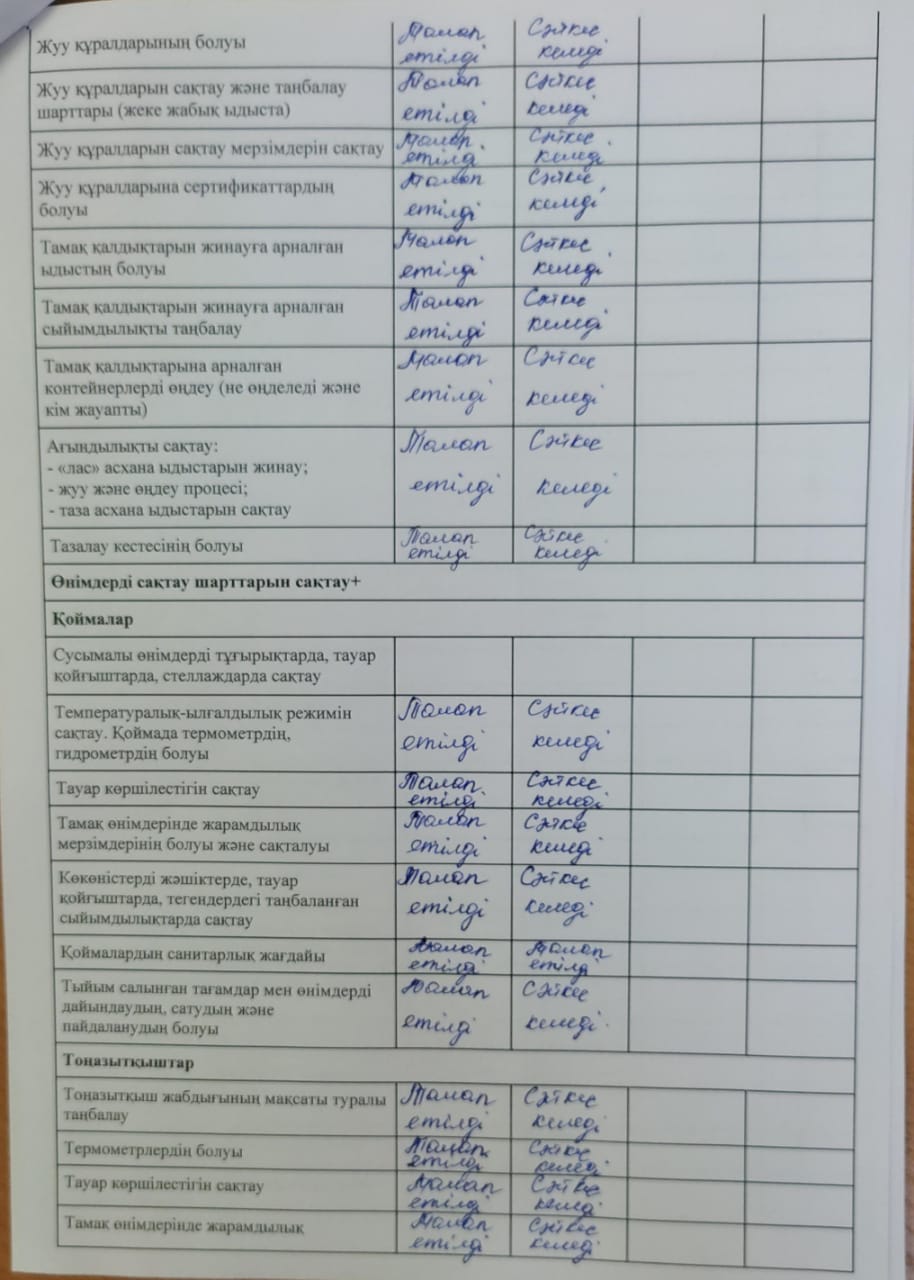 Жуу құралдарының болуы Талап Сәйкес
етілді келеді
Жуу құралдарын сақтау және таңбалау Талап Сәйкес
шарттары (жеке жабық ыдыста) етілді келеді
Жуу құралдарын сақтау мерзімдерін сақтау Талап Сәйкес
етілді келеді
Жуу құралдарына сертификаттардың Талап Сәйкес
болуы етілді келеді
Тамақ қалдықтарын жинауға арналған Талап Сәйкес
ыдыстың болуы етілді келеді
Тамақ қалдықтарын жинауға арналған Талап Сәйкес
сыйымдылықты таңбалау етілді келеді
Тамақ қалдықтарына арналған Талап Сәйкес
контейнерлерді өңдеу (не өңделеді және етілді келеді
кім жауапты)
Ағындылықты сақтау: Талап Сәйкес
- «лас» асхана ыдыстарын жинау;
- жуу және өңдеу процесі; етілді келеді
- таза асхана ыдыстарын сақтау
Тазалау кестесінің болуы Талап Сәйкес
етілді келеді
Өнімдерді сақтау шарттарын сақтау+
Қоймалар
Сусымалы өнімдерді тұғырықтарда, тауар
қойғыштарда, стеллаждарда сақтау
Температуралық-ылғалдылық режимін Талап Сәйкес
сақтау. Қоймада термометрдің, етілді келеді
гидрометрдің болуы
Тауар көршілестігін сақтау Талап Сәйкес
етілді келеді
Тамақ өнімдерінде жарамдылық Талап Сәйкес
мерзімдерінің болуы және сақталуы етілді келеді
Көкөністерді жәшіктерде, тауар Талап Сәйкес
қойғыштарда, тегендердегі таңбаланған етілді келеді
сыйымдылықтарда сақтау
Қоймалардын санитарлық жағдайы Талап Талап
етілді етілді
Тыйым салынған тағамдар мен өнімдерді Талап Сәйкес
дайындаудың, сатудың және
пайдаланудың болуы етілді келеді
Тоңазытқыштар
Тоңазытқыш жабдығының мақсаты туралы Талап Сәйкес
таңбалау етілді келеді
Термометрлердің болуы Талап Сәйкес
етілді келеді
Тауар көршілестігін сақтау Талап Сәйкес
етілді келеді
Тамақ өнімдерінде жарамдылық Талап Сәйкес
етілді келеді